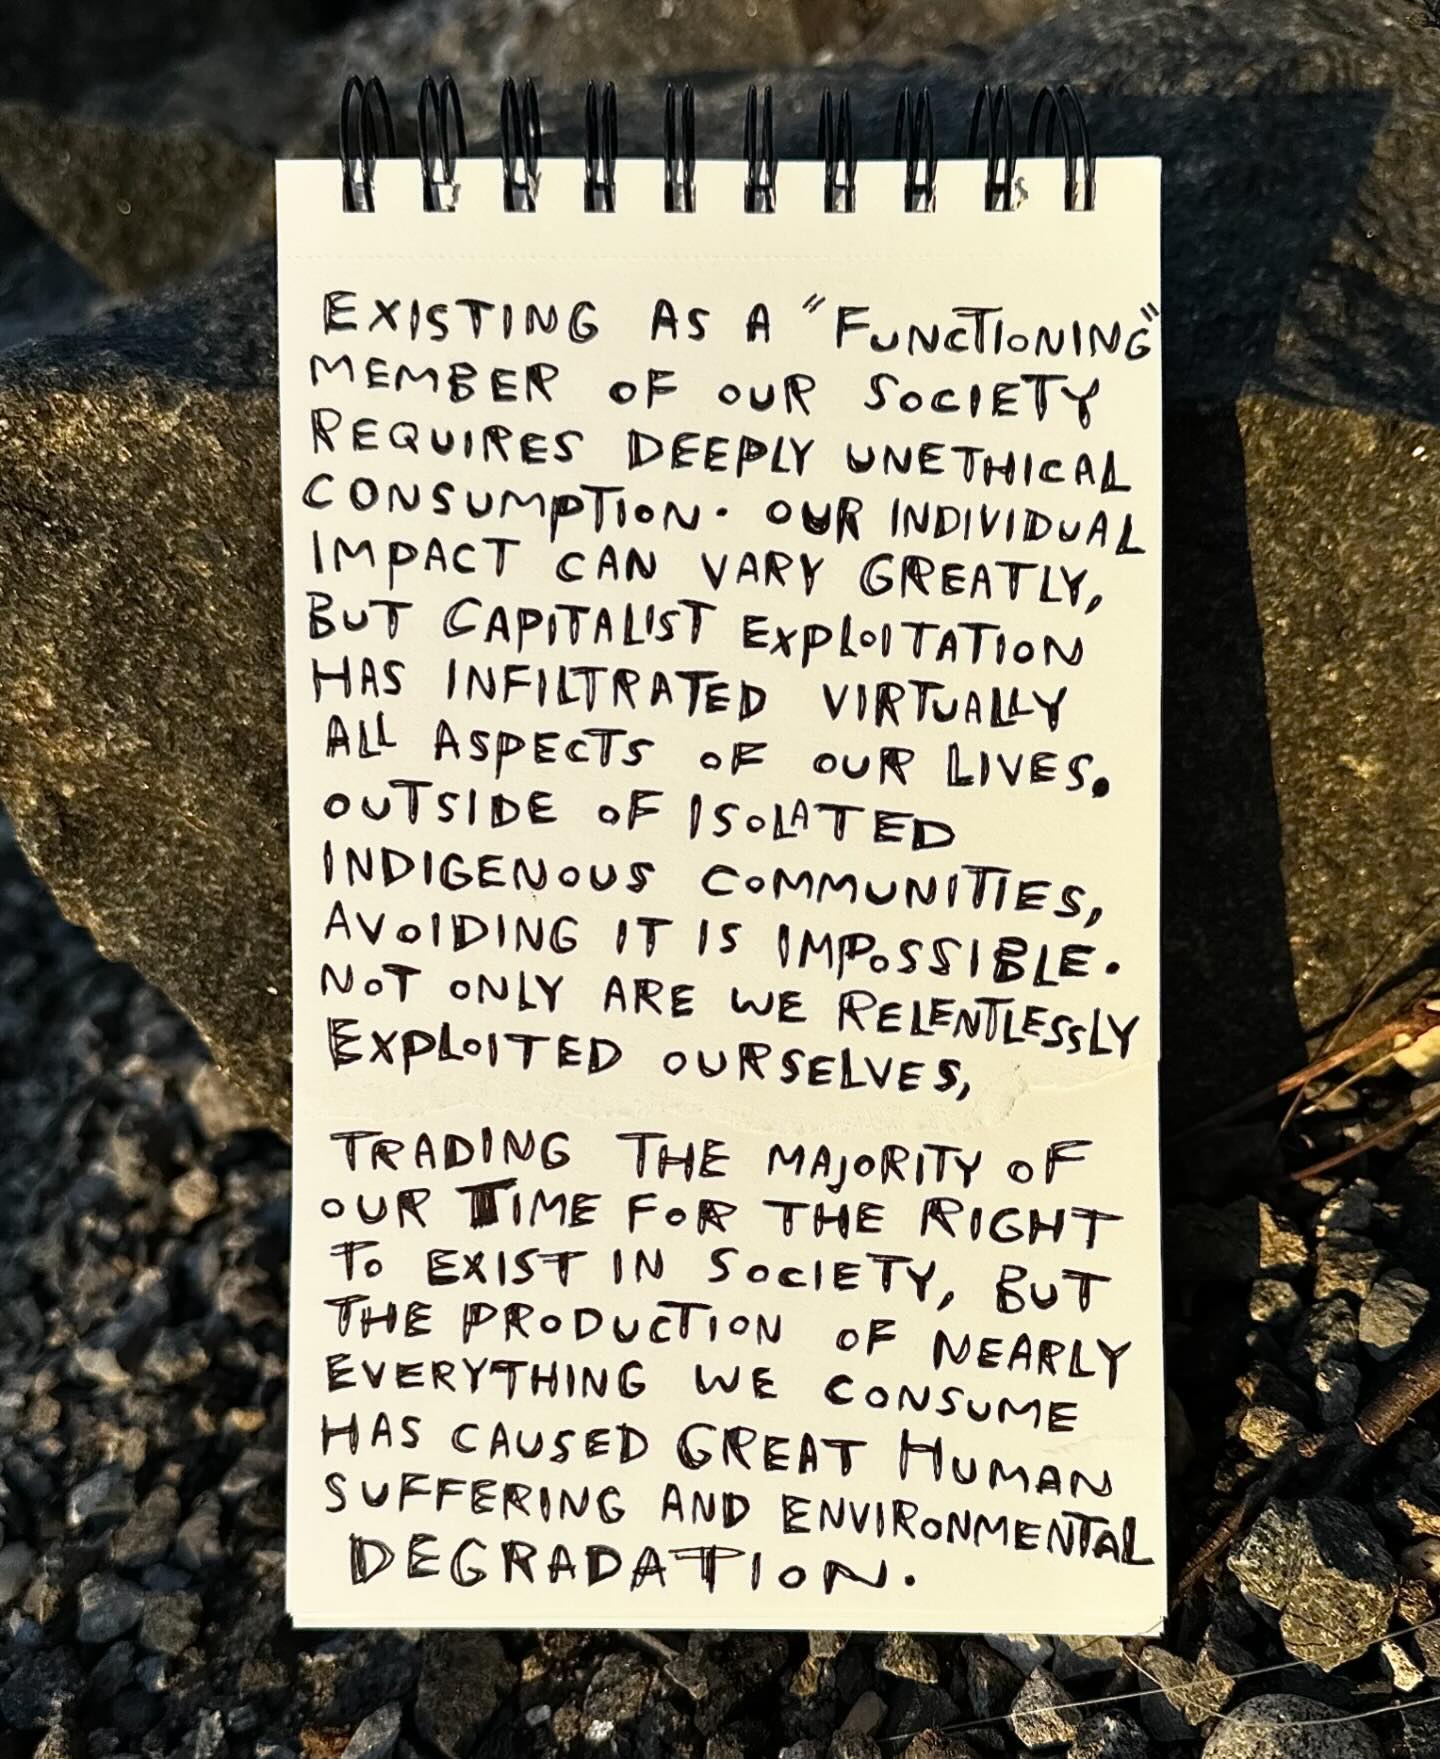 EXISTING AS A "FUNCTIONING"
MEMBER OF OUR SOCIETY
REQUIRES DEEPLY UNETHICAL
CONSUMPTION. OUR INDIVIDUAL
IMPACT CAN VARY GREATLY,
BUT CAPITALIST EXPLOITATION
HAS INFILTRATED VIRTUALLY
ALL ASPECTS OF OUR LIVES.
OUTSIDE OF ISOLATED
INDIGENOUS COMMUNITIES,
AVOIDING IT IS IMPOSSIBLE.
NOT ONLY ARE WE RELENTLESSLY
EXPLOITED OURSELVES,
TRADING THE MAJORITY OF
OUR TIME FOR THE RIGHT
TO EXIST IN SOCIETY, BUT
THE PRODUCTION OF NEARLY
EVERYTHING WE CONSUME
HAS CAUSED GREAT HUMAN
SUFFERING AND ENVIRONMENTAL
DEGRADATION.